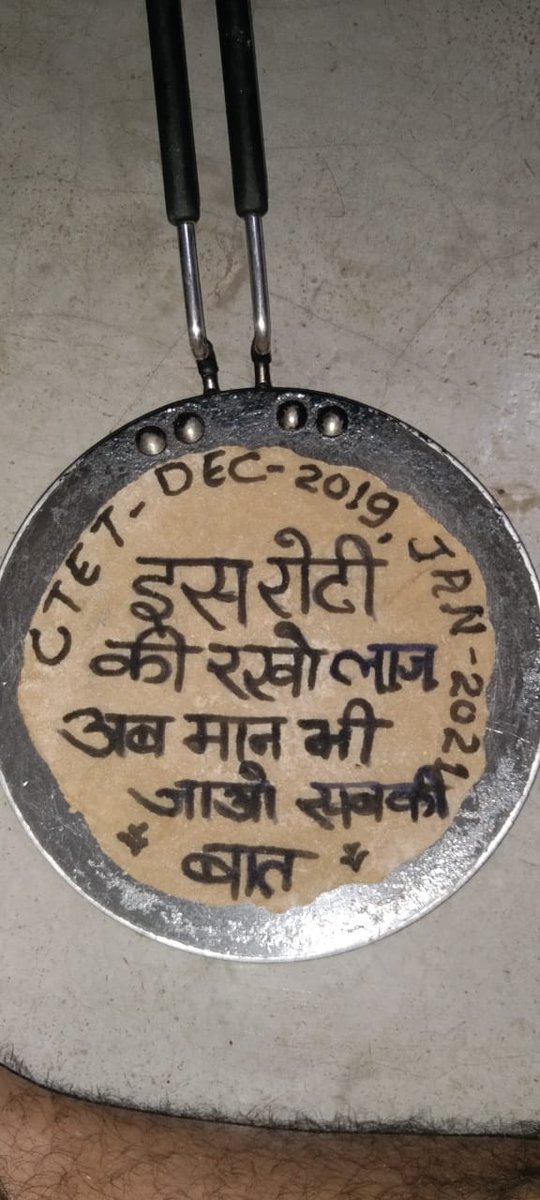 CTET- DEC- 2019, JAN-2021
इस रोटी
की रखो लाज
अब मान भी
जाओ सबकी
बात